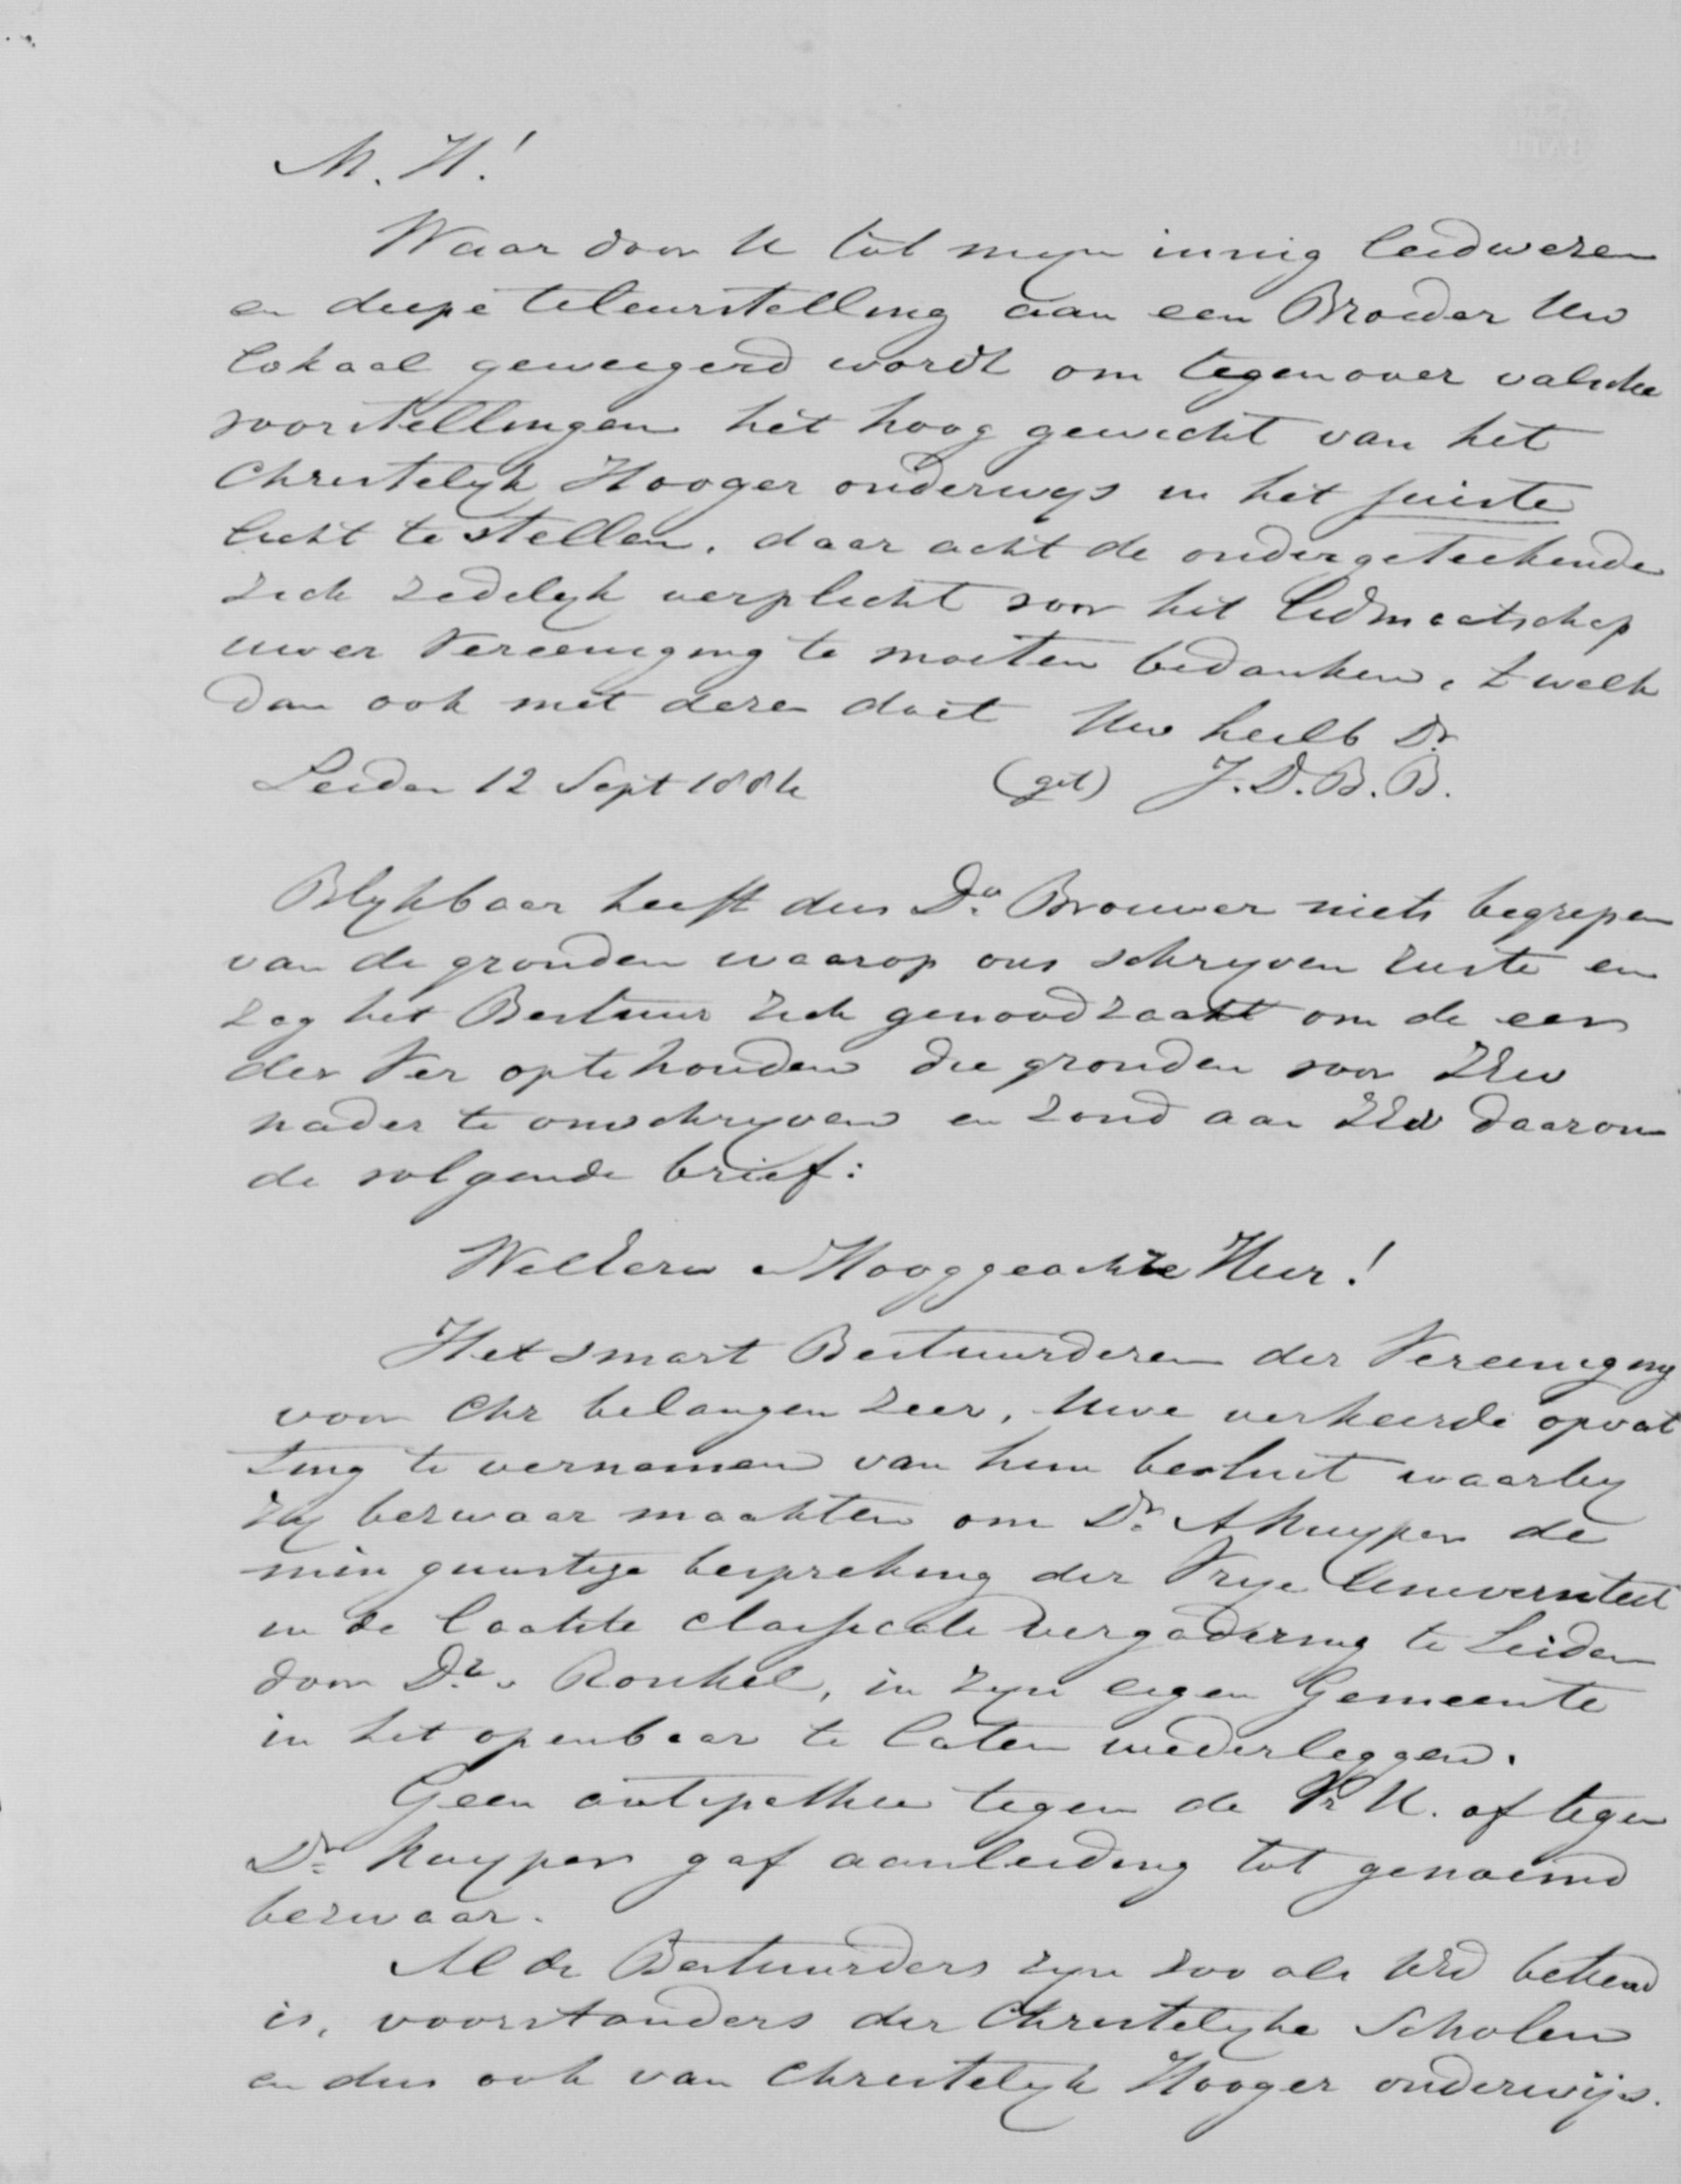 M. H!
Waar door U tot mijn innig leedwezen
en diepe teleurstelling aan een Broeder Uw
lokaal geweigerd wordt om tegenover valsche
voorstellingen het hoog gewicht van het
Christelijk Hooger onderwijs in het juiste
licht te stellen, daar acht de ondergeteekende
zich zedelijk verplicht voor het lidmaatschap
uwer Vereeniging te moeten bedanken, t welk
dan ook met deze doet Uw heilb Dr
Leiden 12 Sept 1884
(get) J. D. B. B.
Blijkbaar heeft dus Ds Brouwer niets begrepen
van de gronden waarop ons schrijven rustte en
zag het Bestuur zich genoodzaakt om de eer
der Ver optehouden die gronden voor ZEw
nader te omschrijven en zond aan ZEw daarom
de volgende brief:
WelEerw Hooggeachte Heer!
Het smart Bestuurderen der Vereeniging
voor Chr belangen zeer, Uwe verkeerde opvat
ting te vernemen van hun besluit waarbij
zij bezwaar maakten om Dr A Kuyper de
min gunstige bespreking der Vrije Universiteit
in de laatste classicale vergadering te Leiden
door Dr v Ronkel, in zijn eigen Gemeente
in het openbaar te laten wederleggen.
Geen antipathie tegen de Vr U. of tegen
Dr Kuyper gaf aanleiding tot genoemd
bezwaar.
Al de Bestuurders zijn zoo als UEd bekend
is, voorstanders der Christelijke Scholen
en dus ook van Christelijk Hooger onderwijs.